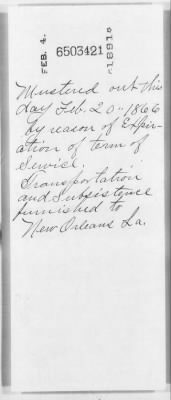 FEB. 4.
6503421
1891
Mustered out this
day Feb. 20" 1866
by reason of Expir-
ation of term of
Service.
Transportation
and Subsistence
furnished to
New Orleans La.